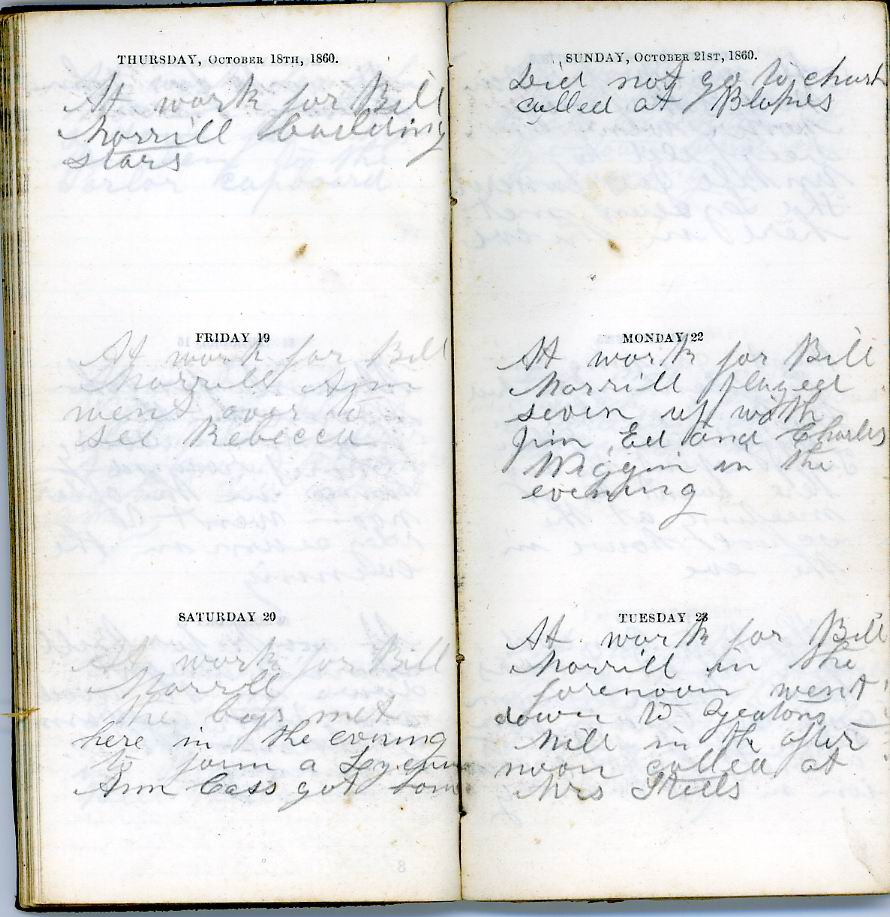 THURSDAY, OCTOBER 18TH, 1860.
At work for Bill
Morrill building
stars
FRIDAY 19
At work for Bill
Morrill Ann
went over to
see Rebecca
SATURDAY 20
At work for Bill
Morrill
the boys met
here in the evening
to form a Lyceum
Ann Cass got home
SUNDAY, OCTOBER 21ST, 1860.
Did not go to church
called at Blakes
MONDAY 22
At work for Bill
Morrill played
seven up with
Jim, Ed and Charles
Wiggin in the
evening
TUESDAY 23
At work for Bill
Morrill in the
forenoon went
down to Yeatons
Mill in the after
noon called at
Mrs